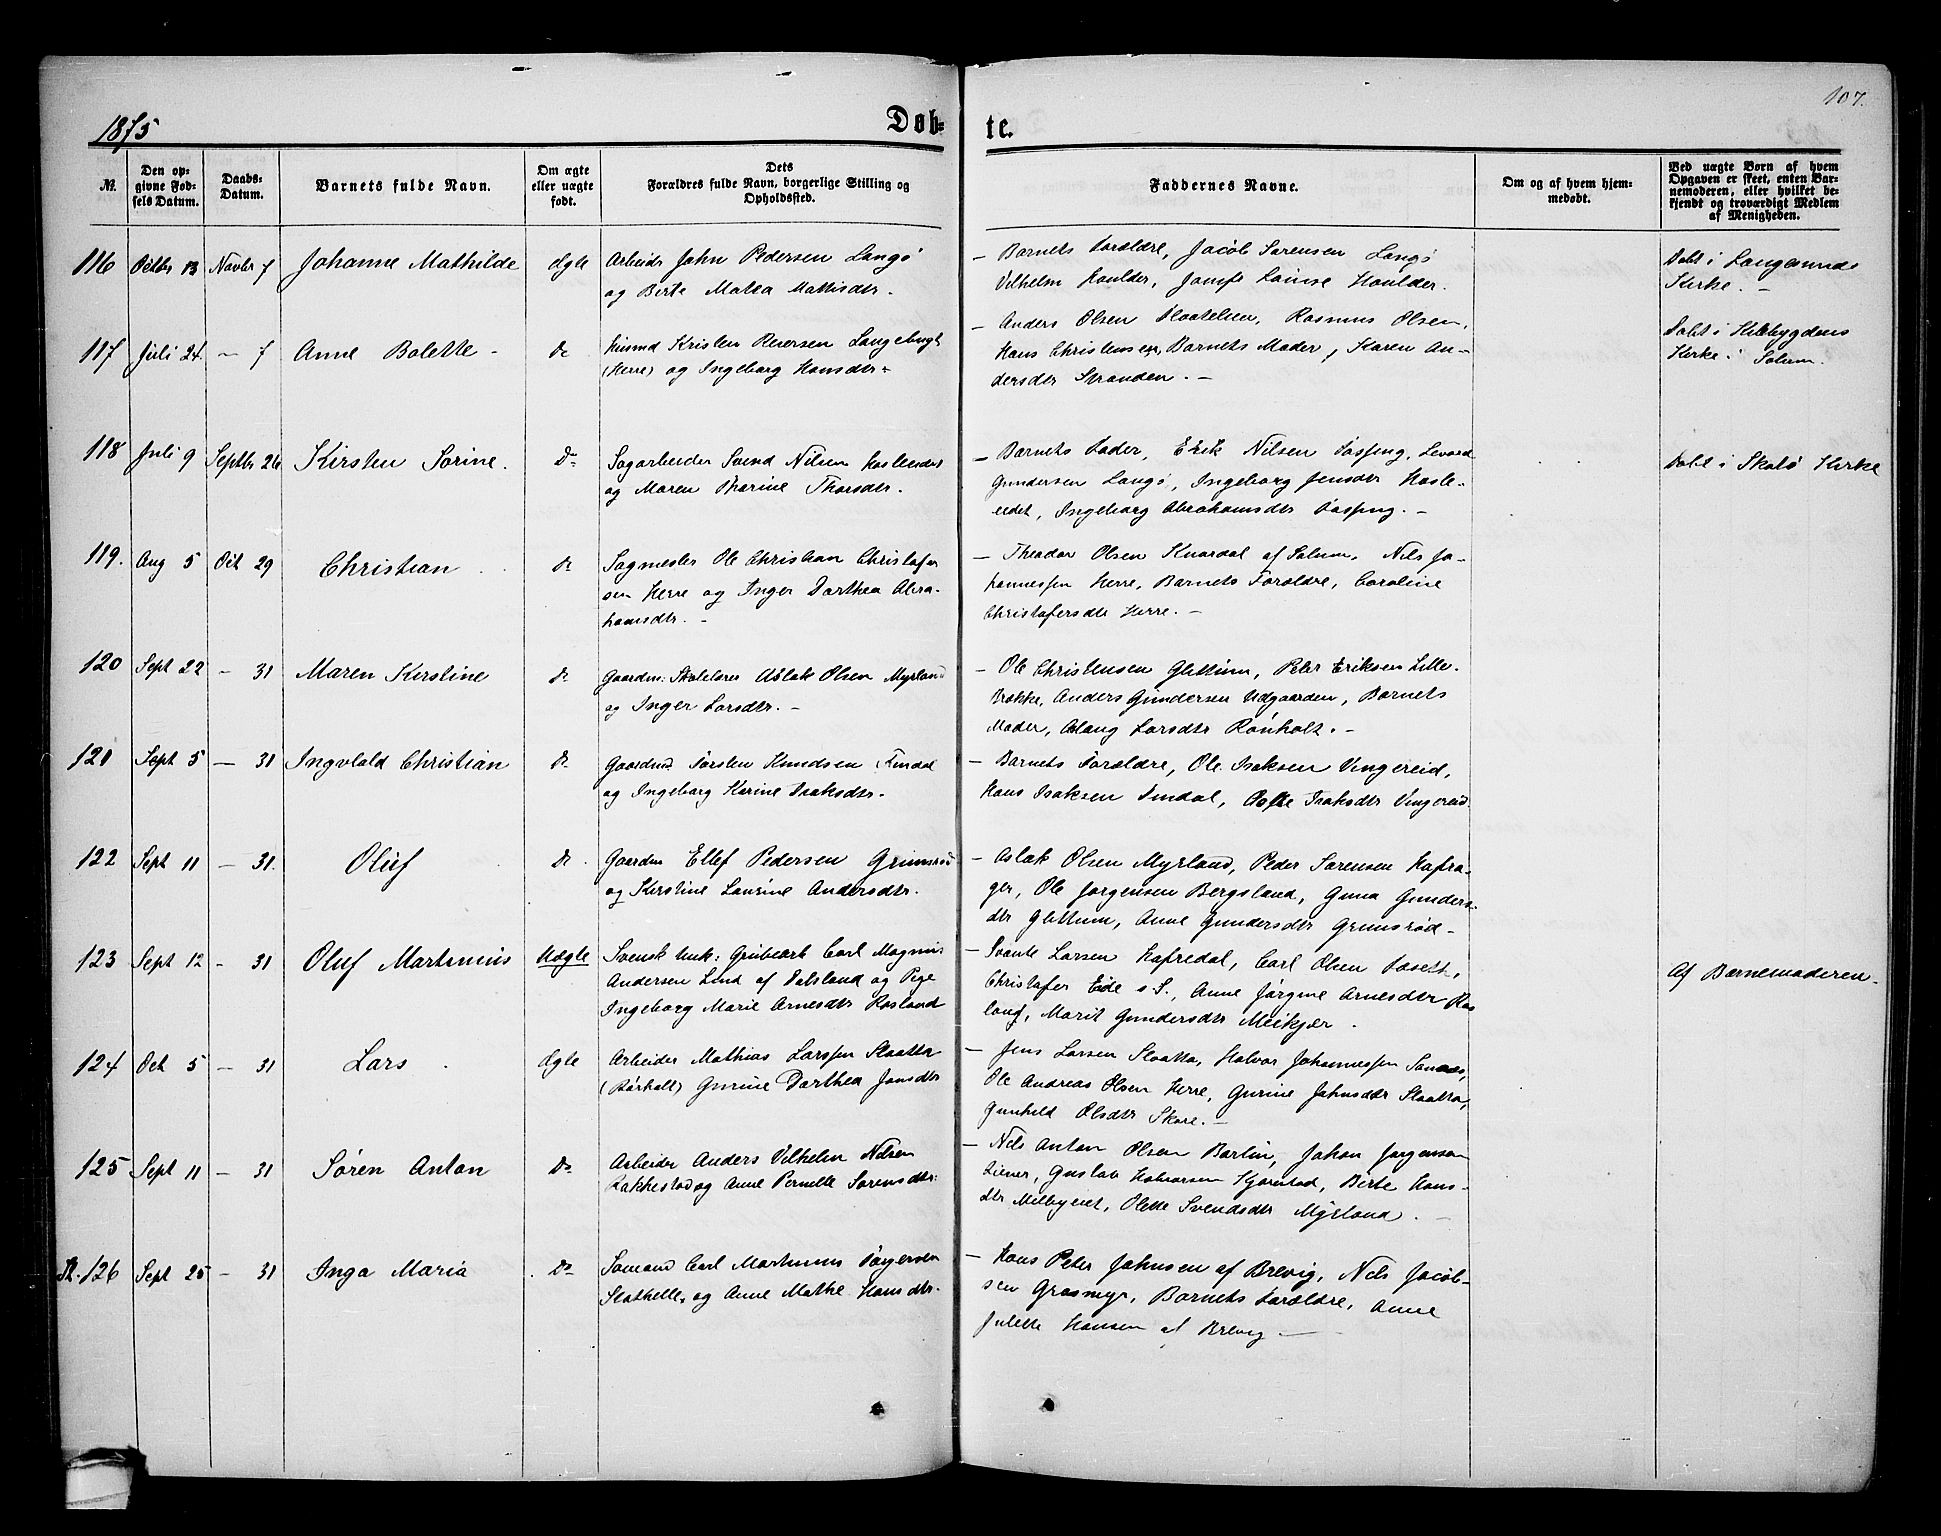 107.
1875 Døb- te.
№. Den opgivne Fødsels Datum. Daabs-Datum. Barnets fulde Navn. Om ægte eller uægte født. Dets Forældres fulde Navn, borgerlige Stilling og Opholdssted. Faddernes Navne. Om og af hvem hjemmedøbt. Ved uægte Børn af hvem Opgaven er skeet, enten Barnemoderen, eller hvilket bekjendt og troværdigt Medlem af Menigheden.
116 Octbr 13 Novbr 7 Johanne Mathilde Ægte Arbeider John Pedersen Langø
og Birte Matea Mathisdtr.
- Barnets Forældre, Jacob Sørensen Langø
Vilhelm Houlder, Jomfr Louise Houlder.
Døbt i Langesunds
Kirke. -
117 Juli 24 - 7 Anne Bolette - Do Husmd Kristen Reiersen Langebugt
(Herre) og Ingeborg Hansdtr
- Anders Olsen Rasmus Olsen,
Hans Christensen, Barnets Moder, Karen An-
dersdtr Stranden. -
Døbt i
Kirke i Solum.
118 Juli 9 Septbr 26 Kirsten Sørine. Do Sagarbeider Svend Nilsen
og Maren Thorine Thorsdtr.
- Barnets Fader, Erik Nilsen
Gundersen Langø, Ingeborg Jensdtr Hasle-
eidet, Ingeborg Abrahamsdtr -
Døbt i Skatø Kirke
119. Aug 5 Oct 29 Christian Do Sagmester Ole Christian Christofer
sen Herre og Inger Dorthea Abra-
hamsdtr. -
- Theodor Olsen af Solum, Nils Jo-
hannessen Herre, Barnets Forældre, Caroline
Christofersdtr Herre. -
120 Sept 22 - 31 Maren Kirstine Do Gaardm: Skolelærer Aslak Olsen Myrland
og Inger Larsdtr. -
- Ole Christensen Glittum, Peter Eriksen Lille-
Anders Gundersen Udgaarden, Barnets
Moder, Aslaug Larsdtr Rønholt. -
121 Sept 5 - 31 Ingvald Christian Do Gaardmd Torsten Knudsen Findal
og Ingeborg Karine Isaksdtr.
- Barnets Forældre, Ole Isaksen Vingereid,
Hans Isaksen Findal, Isaksdtr Vingereid
122 Sept 11 - 31. Oluf Do. Gaardm Ellef Pedersen Grimsrød
og Kirstine Laurine Andersdtr.
- Aslak Olsen Myrland, Peder Sørensen Hafra-
ger, Ole Jørgensen Bergsland, Guna Gunders-
dtr Glittum, Anne Gundersdtr Grimsrød -
123 Sept 12 - 31 Oluf Martinius Uægte Svensk Unk: Grubearb Carl Magnus
Andersen Lind af Dalsland og Pige
Ingeborg Marie Arnesdtr Rosland
- Svante Larsen Hafredal, Carl Olsen
Christofer Eide s. S., Anne Jørgine Arnesdtr Ros
land, Marit Gundersdtr Meikjær.
Af Barnemoderen -
124 Oct 5 - 31 Lars Ægte Arbeider Mathias Larssen Slaatta
(Rørholt) Gurine Dorthea Jonsdtr
- Jens Larsen Slaatta, Halvor Johannessen
Ole Andreas Olsen Herre, Gurine Johnsdtr Slaatta,
Gunhild Olsdtr Skare. -
125 Sept 11 - 31 Søren Anton Do Arbeider Anders Vilhelm Nilsen
Rakkestad og Anne Pernelle Sørensdtr.
- Nils Anton Olsen Johan Jørgensen
Gustav Halvorsen Birte Hans-
dtr Olette Svendsdtr Myrland. -
St. 126 Sept 25 - 31 Inga Maria. Do Sømand Carl Martinius Torgersen
Stathelle og Anne Mathe Hansdtr.
- Hans Peter Johnsen af Brevig, Nils Jacob-
sen Grasmyr, Barnets Forældre, Anne
Julette Hansen af Brevig -